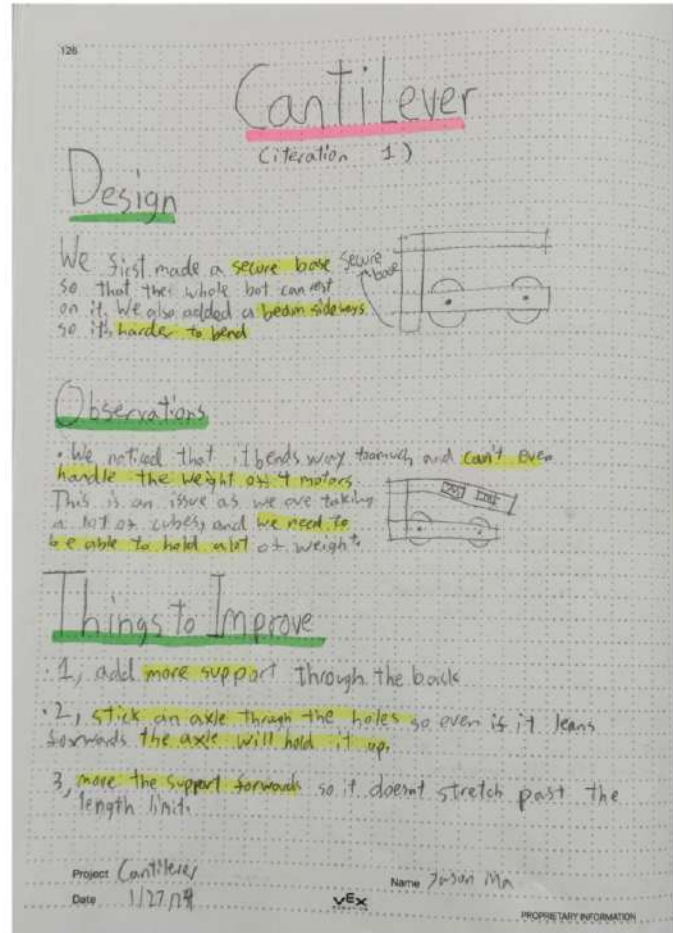 126
Cantilever
(iteration 1)
Design
We first made a secure base
so that the whole bot can rest
on it. We also added a beam sideways
so it's harder to bend
secure
base
Observations
• We noticed that it bends way too much, and can't even
handle the weight of 4 motors
This is an issue as we are taking
a lot of cubes, and we need to
be able to hold a lot of weight.
Things to Improve
• 1, add more support through the back
• 2, stick an axle through the holes so even if it leans
forwards the axle will hold it up.
3, move the support forwards so it doesn't stretch past the
length limit.
Project Cantilever
Name Jason Ma
Date 1/27/
VEX
PROPRIETARY INFORMATION